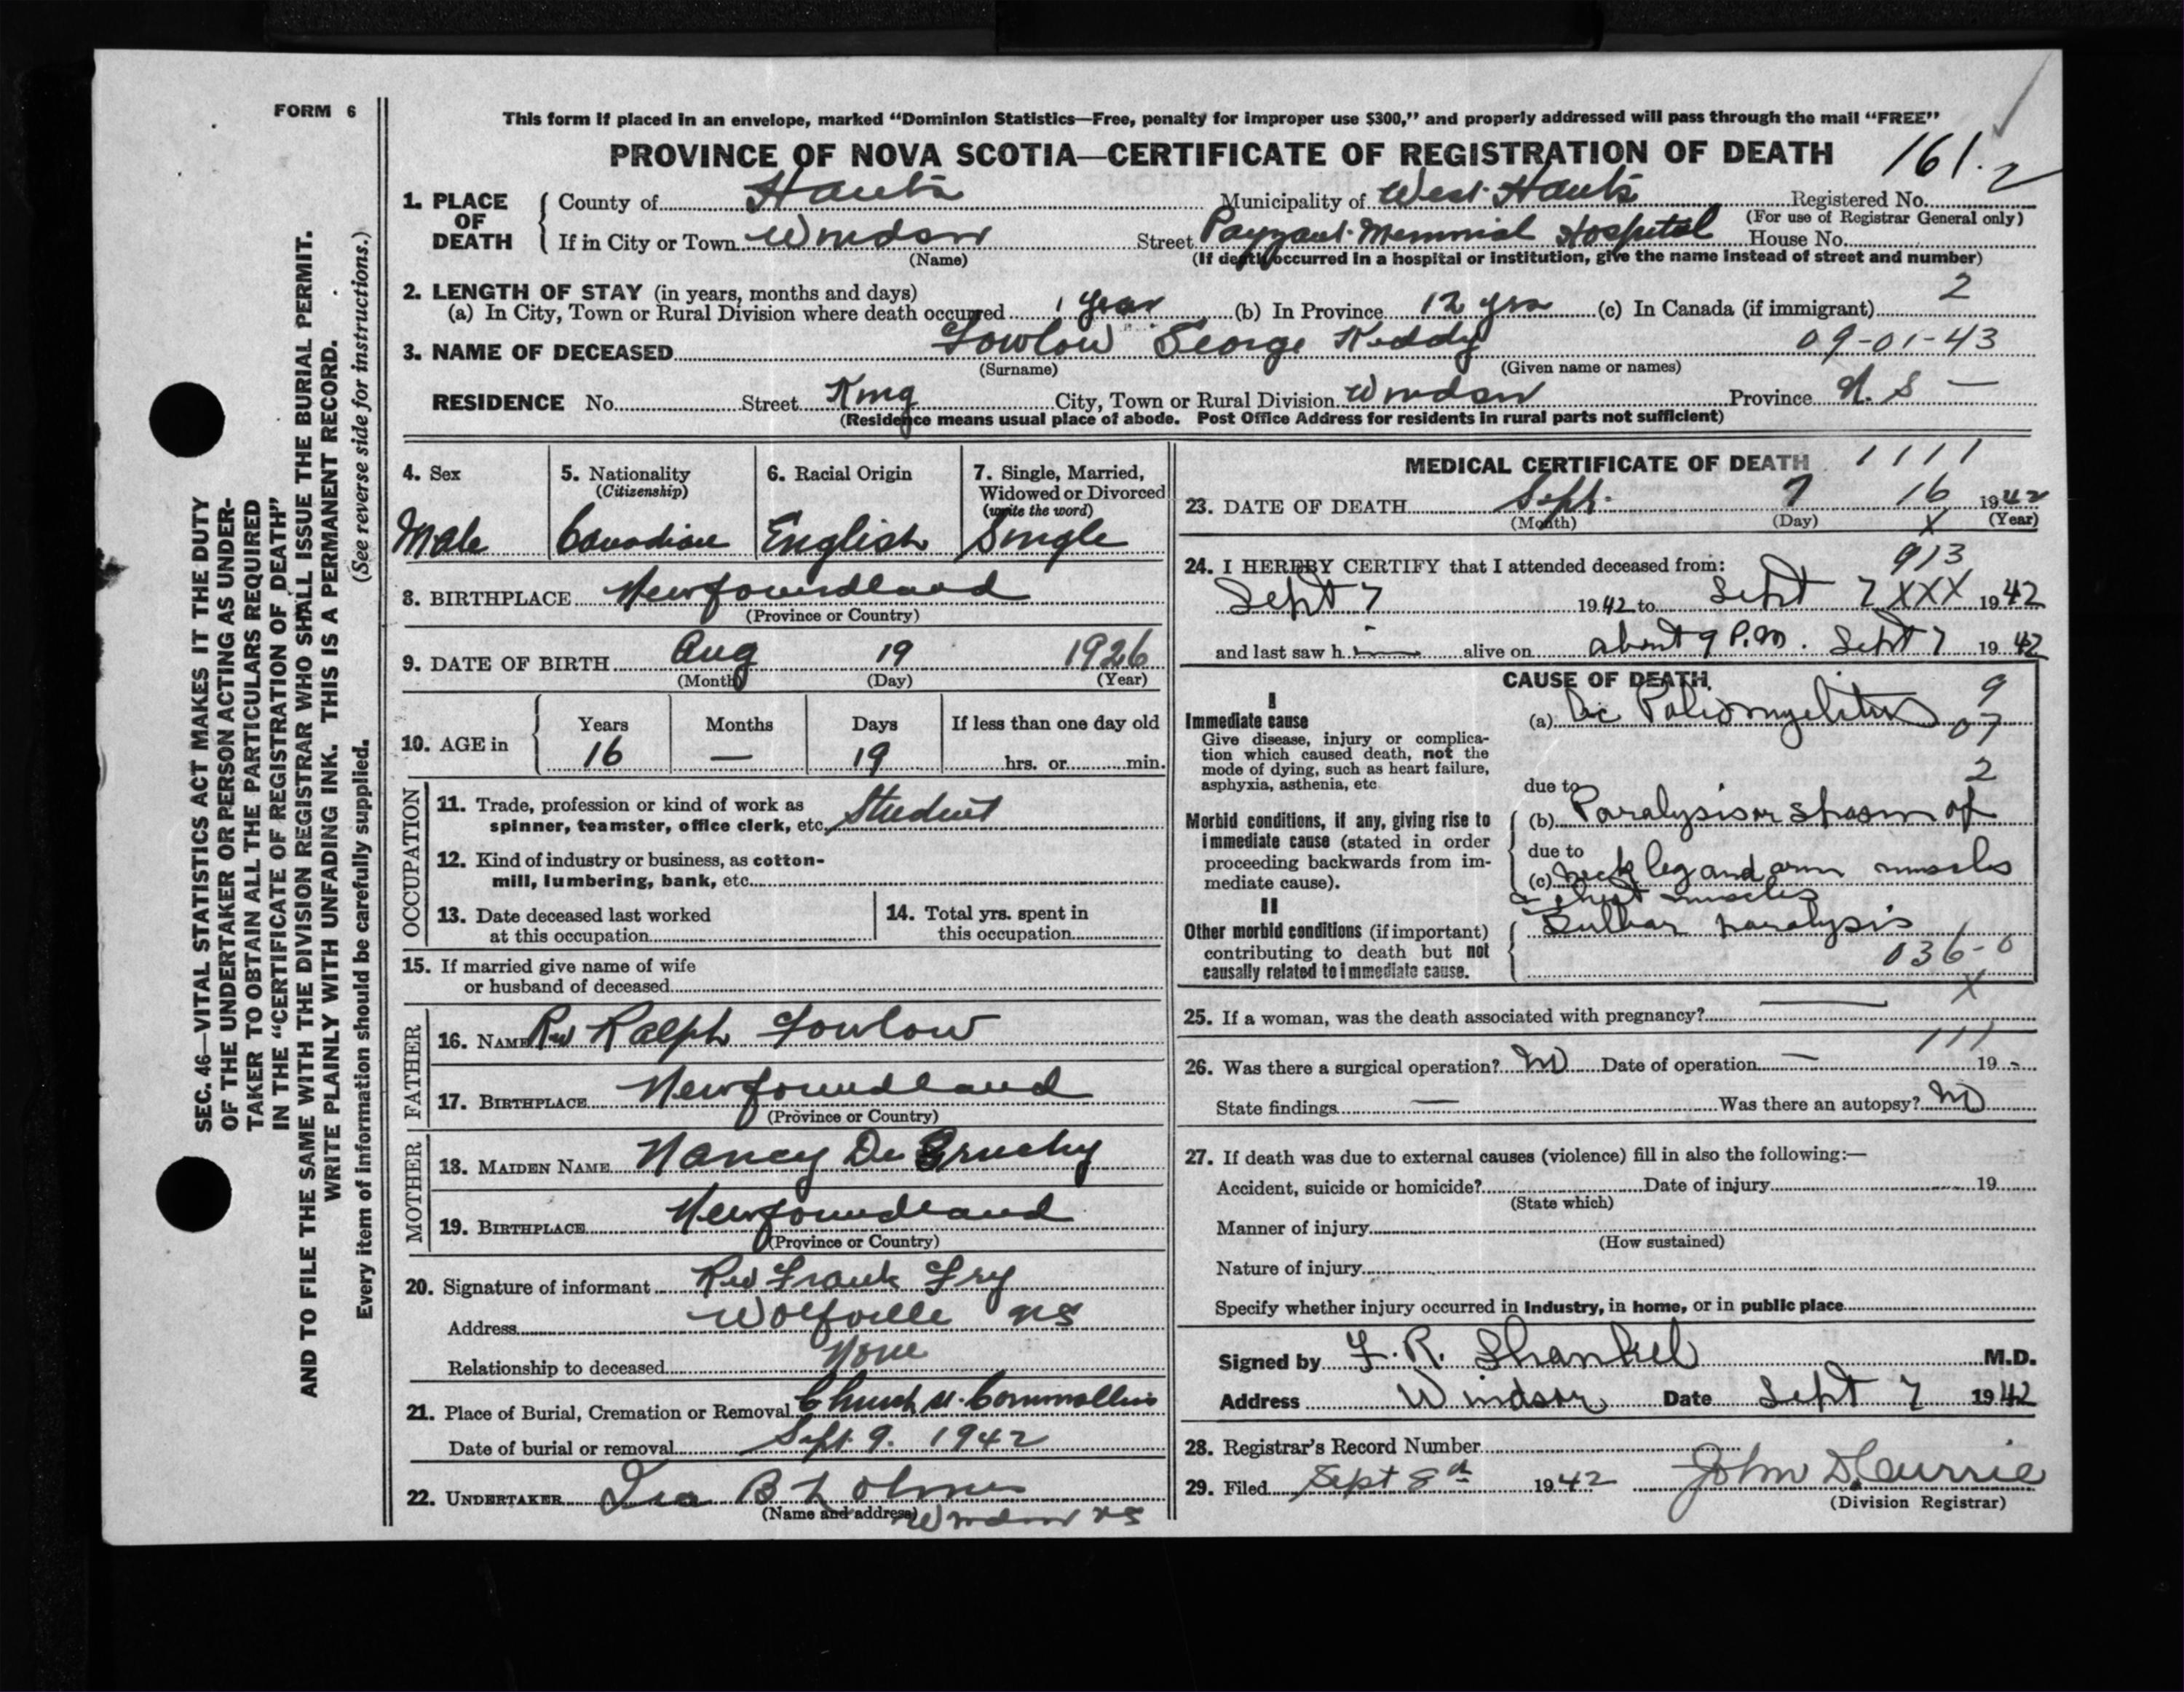 FORM 6
This form if placed in an envelope, marked “Dominion Statistics—Free, penalty for improper use $300,” and properly addressed will pass through the mail “FREE”
PROVINCE OF NOVA SCOTIA—CERTIFICATE OF REGISTRATION OF DEATH 161.2
1. PLACE OF DEATH
County of Hants Municipality of West Hants Registered No.
(For use of Registrar General only)
If in City or Town Windsor Street Payzant Memorial Hospital House No.
(Name) (If death occurred in a hospital or institution, give the name instead of street and number)
2. LENGTH OF STAY (in years, months and days) 2
(a) In City, Town or Rural Division where death occurred 1 year (b) In Province 12 yrs (c) In Canada (if immigrant)
3. NAME OF DECEASED Fowlow George Keddy 09-01-43
(Surname) (Given name or names)
RESIDENCE No. Street King City, Town or Rural Division Windsor Province N. S —
(Residence means usual place of abode. Post Office Address for residents in rural parts not sufficient)
4. Sex
Male
5. Nationality
(Citizenship)
Canadian
6. Racial Origin
English
7. Single, Married,
Widowed or Divorced
(write the word)
Single
8. BIRTHPLACE Newfoundland
(Province or Country)
9. DATE OF BIRTH Aug 19 1926
(Month) (Day) (Year)
10. AGE in
Years Months Days If less than one day old
16 — 19 hrs. or min.
OCCUPATION
11. Trade, profession or kind of work as
spinner, teamster, office clerk, etc. Student
12. Kind of industry or business, as cotton-
mill, lumbering, bank, etc.
13. Date deceased last worked
at this occupation
14. Total yrs. spent in
this occupation
15. If married give name of wife
or husband of deceased
FATHER
16. NAME Rev Ralph Fowlow
17. BIRTHPLACE Newfoundland
(Province or Country)
MOTHER
18. MAIDEN NAME Nancy De Gruchy
19. BIRTHPLACE Newfoundland
(Province or Country)
20. Signature of informant Rev Frank Fry
Address Wolfville NS
Relationship to deceased None
21. Place of Burial, Cremation or Removal Church St. Cornwallis
Date of burial or removal Sept. 9. 1942
22. UNDERTAKER Ira B
(Name and address) Windsor NS
MEDICAL CERTIFICATE OF DEATH 1111
23. DATE OF DEATH Sept. 7 16 1942
(Month) (Day) X (Year)
24. I HEREBY CERTIFY that I attended deceased from: 913
Sept 7 1942 to Sept 7 XXX 1942
and last saw h im alive on about 9 P.M. Sept 7 1942
CAUSE OF DEATH
I
Immediate cause
Give disease, injury or complica-
tion which caused death, not the
mode of dying, such as heart failure,
asphyxia, asthenia, etc.
(a) Ac Poliomyelitis 9
07
2
due to
Morbid conditions, if any, giving rise to
immediate cause (stated in order
proceeding backwards from im-
mediate cause).
(b) Paralysis or spasm of
due to
(c) neck leg and arm muscles
& chest muscles
II
Other morbid conditions (if important)
contributing to death but not
causally related to immediate cause.
Bulbar paralysis
036-0
X
25. If a woman, was the death associated with pregnancy? —
111
26. Was there a surgical operation? No Date of operation — 19 -
State findings — Was there an autopsy? No
27. If death was due to external causes (violence) fill in also the following:—
Accident, suicide or homicide? Date of injury 19
(State which)
Manner of injury
(How sustained)
Nature of injury
Specify whether injury occurred in Industry, in home, or in public place
Signed by F. R. Shankel M.D.
Address Windsor Date Sept 7 1942
28. Registrar's Record Number
29. Filed Sept 8th 1942 John D Currie
(Division Registrar)
SEC. 46—VITAL STATISTICS ACT MAKES IT THE DUTY
OF THE UNDERTAKER OR PERSON ACTING AS UNDER-
TAKER TO OBTAIN ALL THE PARTICULARS REQUIRED
IN THE “CERTIFICATE OF REGISTRATION OF DEATH”
AND TO FILE THE SAME WITH THE DIVISION REGISTRAR WHO SHALL ISSUE THE BURIAL PERMIT.
WRITE PLAINLY WITH UNFADING INK. THIS IS A PERMANENT RECORD.
Every item of information should be carefully supplied. (See reverse side for instructions.)